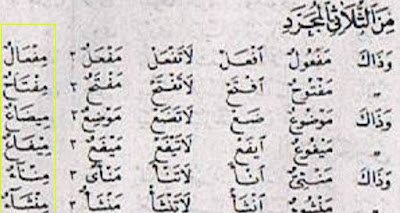 مِنَ الثُّلَاثِي الْمُجَرَّدِ
وَذَاكَ مَفْعُولٌ اَفْعَلْ لَاتَفْعَلْ مَفْعَلٌ ٣ مِفْعَالٌ
〃 مَفْتُوْحٌ اِفْتَحْ لَاتَفْتَحْ مَفْتَحٌ ٢ مِفْتَاحٌ
وَذَاكَ مَوْضُوْعٌ ضَعْ لَاتَضَعْ مَوْضِعٌ ٢ مِيْضَاعٌ
〃 مَيْفُوعٌ اَيْفَعْ لَاتَيْفَعْ مَيْفَعٌ ٢ مِيْفَاعٌ
وَذَاكَ اَنْأَ لَاتَنْأَ مَنْأًى ٣ مِنْآءٌ
〃 اَنْشَأْ لَاتَنْشَأْ مَنْشَأٌ ٣ مِنْشَاءٌ